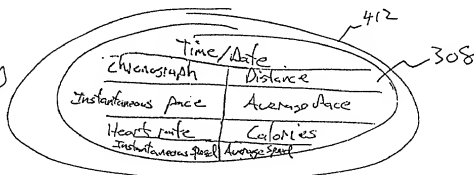 412
Time/Date
308
Chronograph Distance
Instantaneous pace Average Pace
Heart rate Calories
Instantaneous speed Average speed